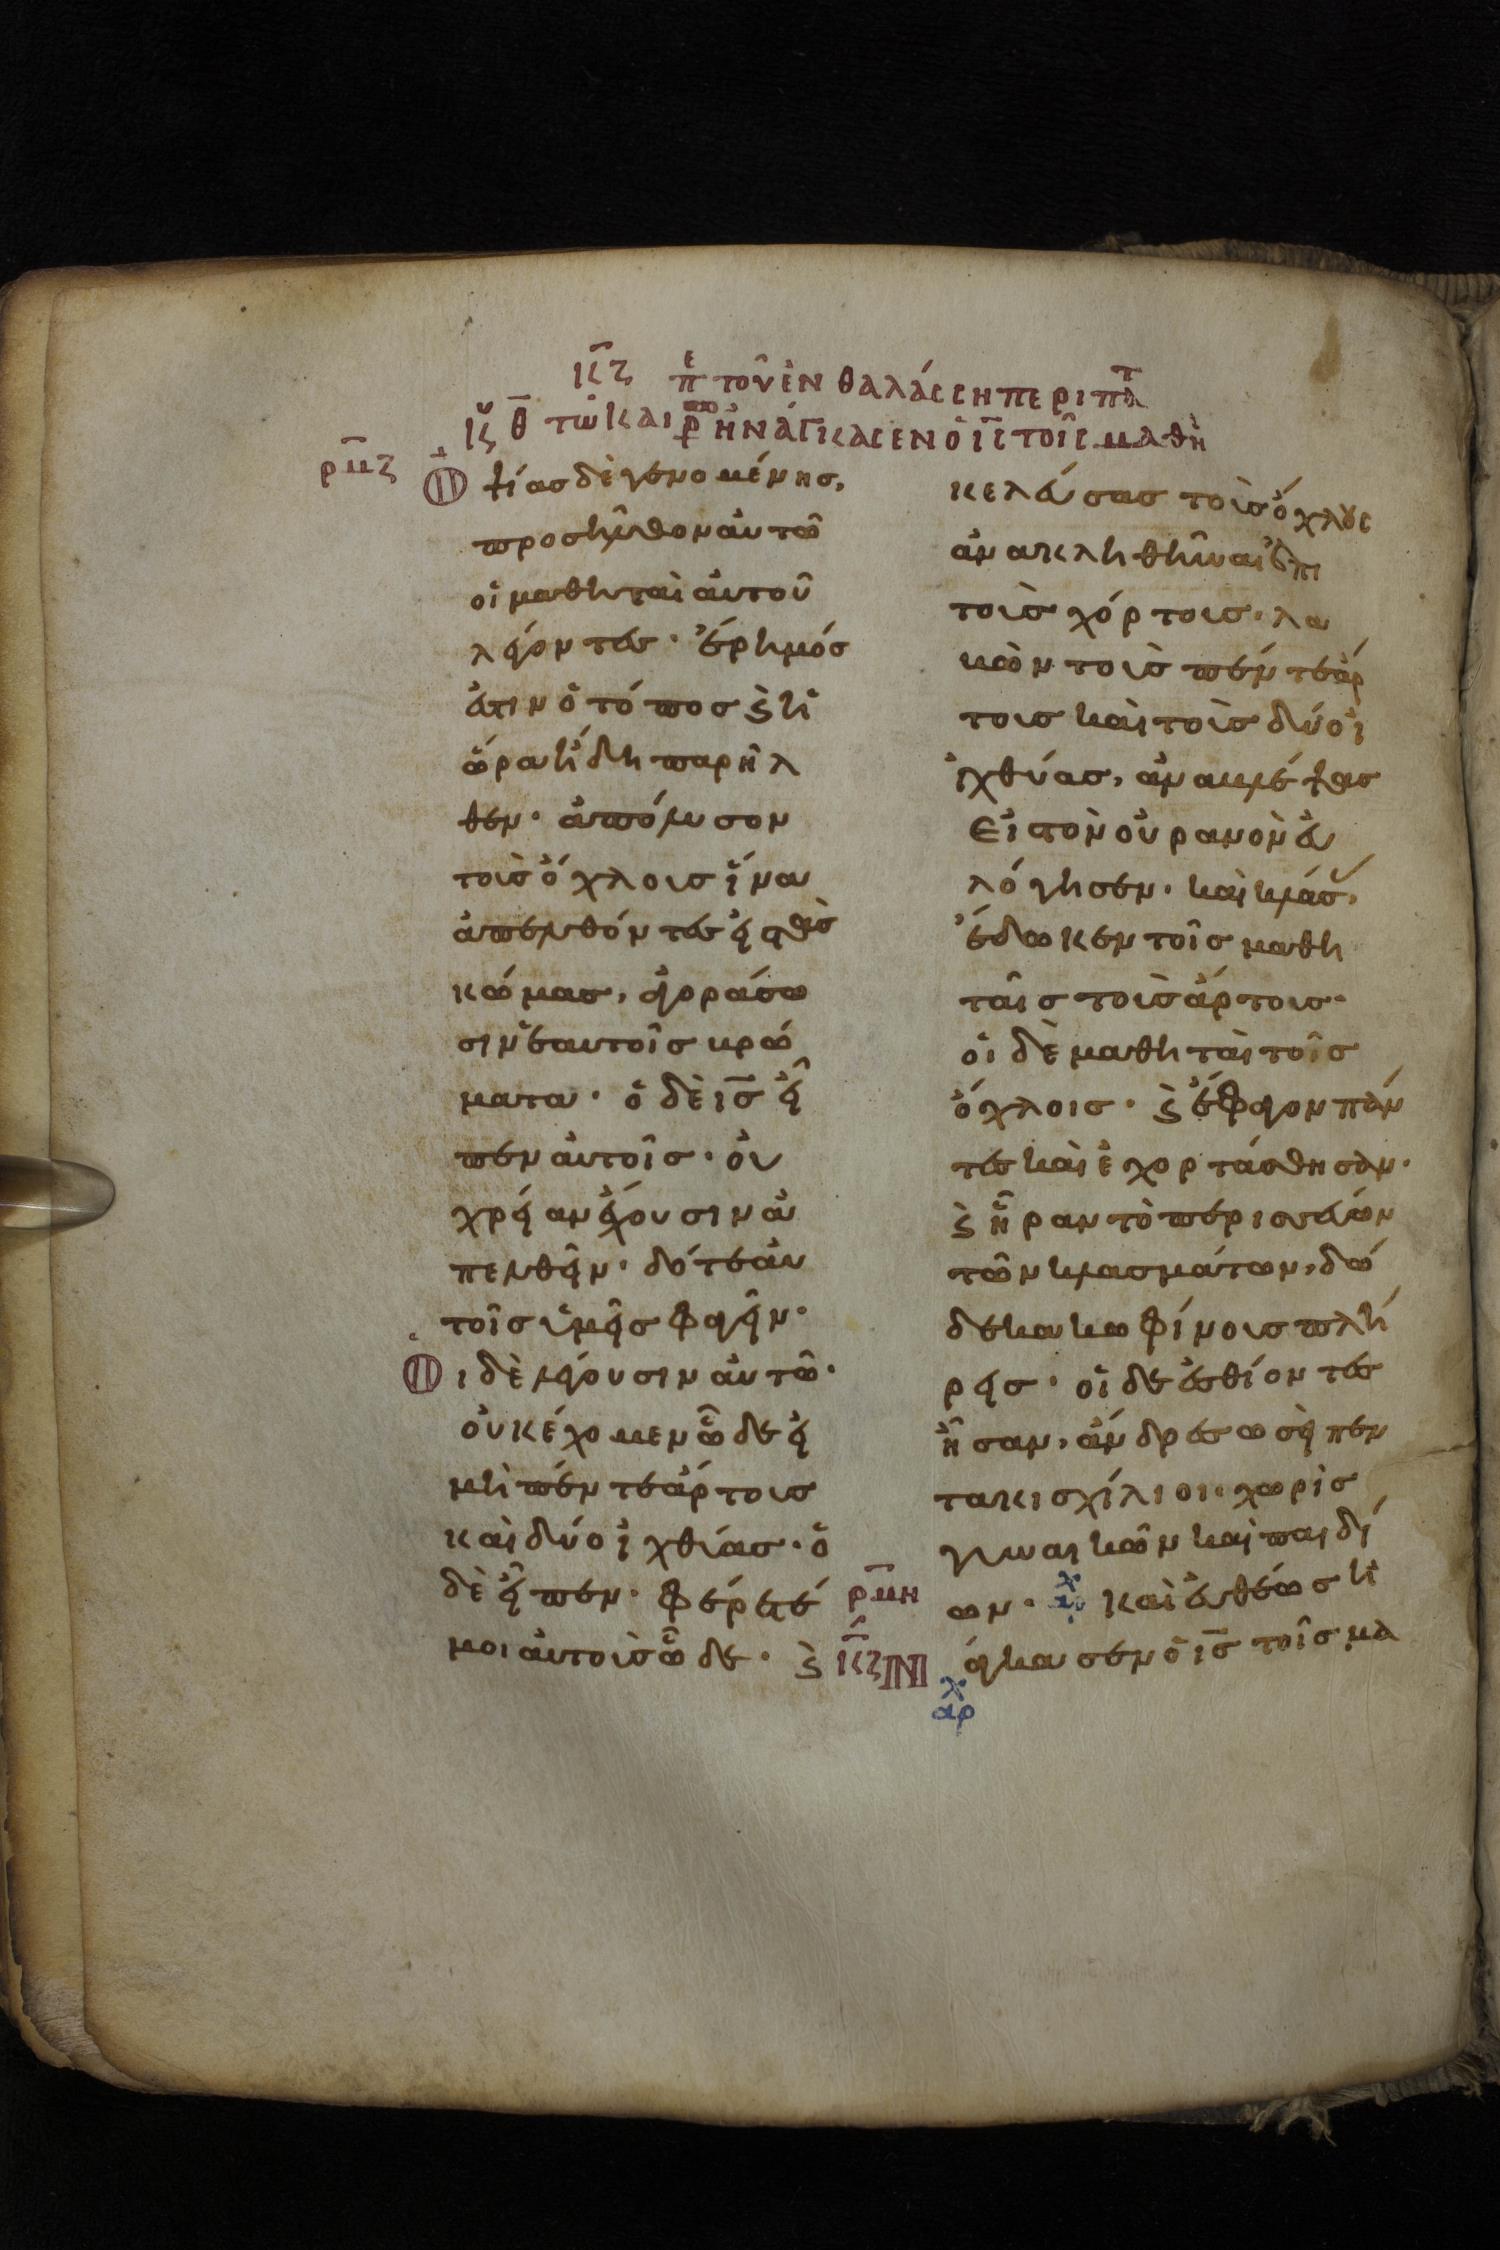 κζ πε τοῦ ἐν θαλάσσῃ περιπατ
κυ θ τῶ καιρῶ ἠνάγκασεν ὁ ις τοῖς μαθη
ρμζ
Ὀψίας δὲ γενομένης,
προσῆλθον αὐτῶ
οἱ μαθηταὶ αὐτοῦ
λέγοντες· ἔρημός
ἐστιν ὁ τόπος ϗ ἡ
ὥρα ἤδη παρῆλ
θεν· ἀπόλυσον
τοὺς ὄχλους ἵνα
ἀπελθόντες εἰς τὰς
κώμας, ἀγοράσω
σιν ἑαυτοῖς βρώ
ματα· ὁ δὲ ις εἶ
πεν αὐτοῖς· οὐ
χρείαν ἔχουσιν ἀ
πελθεῖν· δότε αὐ
τοῖς ὑμεῖς φαγεῖν·
Οἱ δὲ λέγουσιν αὐτῶ·
οὐκ ἔχομεν ὧδε εἰ
μὴ πέντε ἄρτους
καὶ δύο ἰχθύας· ὁ
δὲ εἶπεν· φέρετέ
μοι αὐτοὺς ὧδε· ϗ
κελεύσας τοὺς ὄχλους
ἀνακληθῆναι ἐπι
τοὺς χόρτους· λα
βὼν τοὺς πέντε ἄρ
τους καὶ τοὺς δύο ἰ
ἰχθύας, ἀναβλέψας
εἰς τὸν οὐρανὸν εὐ
λόγησεν· καὶ κλάσ,
ἔδωκεν τοῖς μαθη
ταῖς τοὺς ἄρτους·
οἱ δὲ μαθηταὶ τοῖς
ὄχλοις· ϗ ἔφαγον πάν
τες καὶ ἐχορτάσθησαν·
ϗ ἦραν τὸ περισσεύων
τῶν κλασμάτων, δώ
δεκα κοφίνους πλή
ρεις· οἱ δε ἐσθίοντες
ἦσαν, ἄνδρες ὡσεὶ πεν
τακισχίλιοι· χωρὶς
γυναικῶν καὶ παιδί
ρμη
ων· καὶ εὐθέως ἠ
κζ νάγκασεν ὁ ις τοῖς μα
αρχ